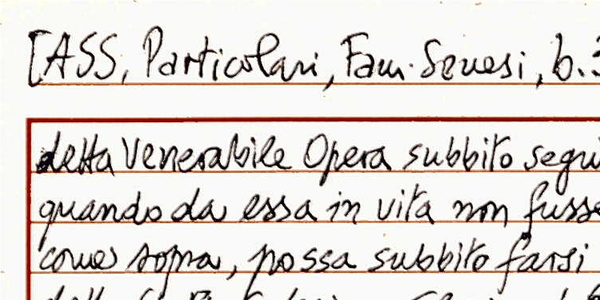 [ASS, Particolari, Fam. Senesi, b.3
detta Venerabile Opera subbito segui
quando da essa in vita non fusse
come sopra, possa subbito farsi